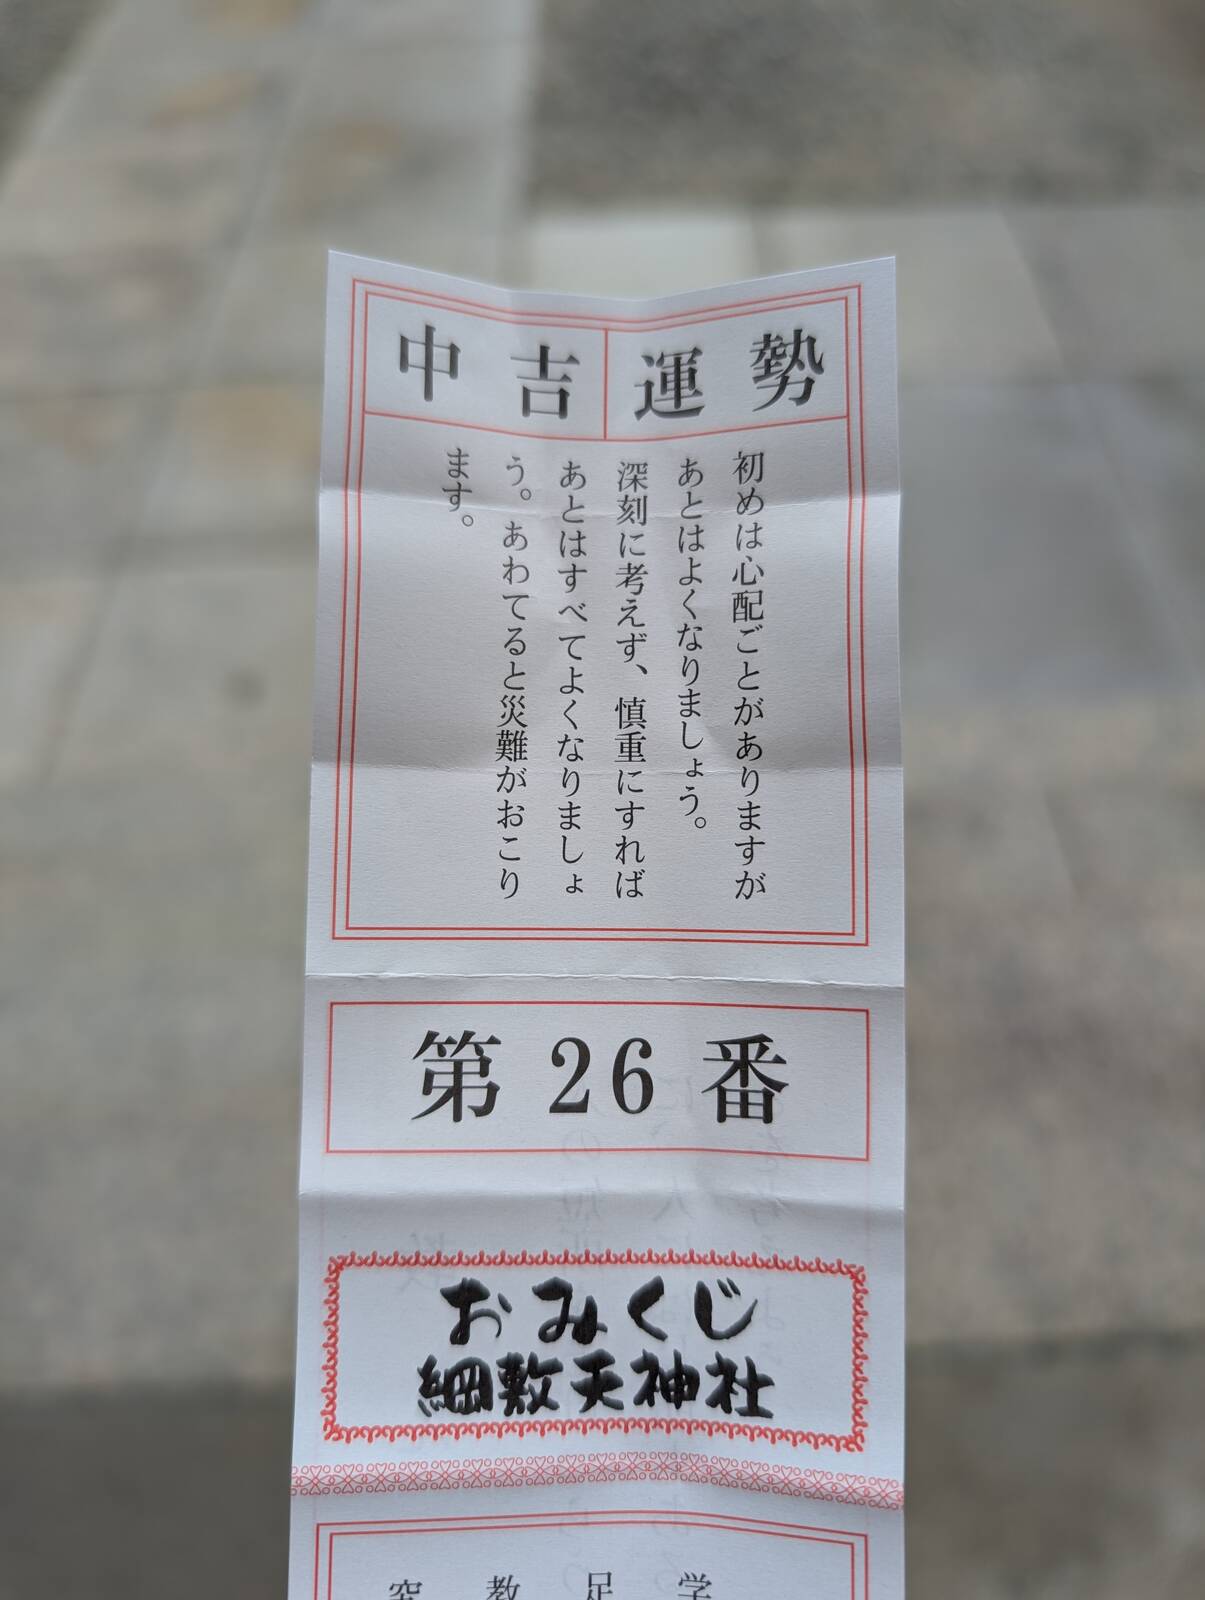 中吉 運勢
初めは心配ごとがありますが
あとはよくなりましょう。
深刻に考えず、慎重にすれば
あとはすべてよくなりましょ
う。あわてると災難がおこり
ます。
第26番
おみくじ
綱敷天神社